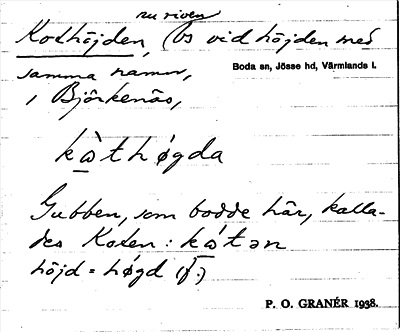 nu riven
Kothöjden, (bs vid höjden med
Boda sn, Jösse hd, Värmlands l.
samma namn,
i Björkenäs,
kàthøgda
Gubben, som bodde här, kalla-
des Koten: kátən
höjd = høgd (f.)
P. O. GRANÉR 1938.